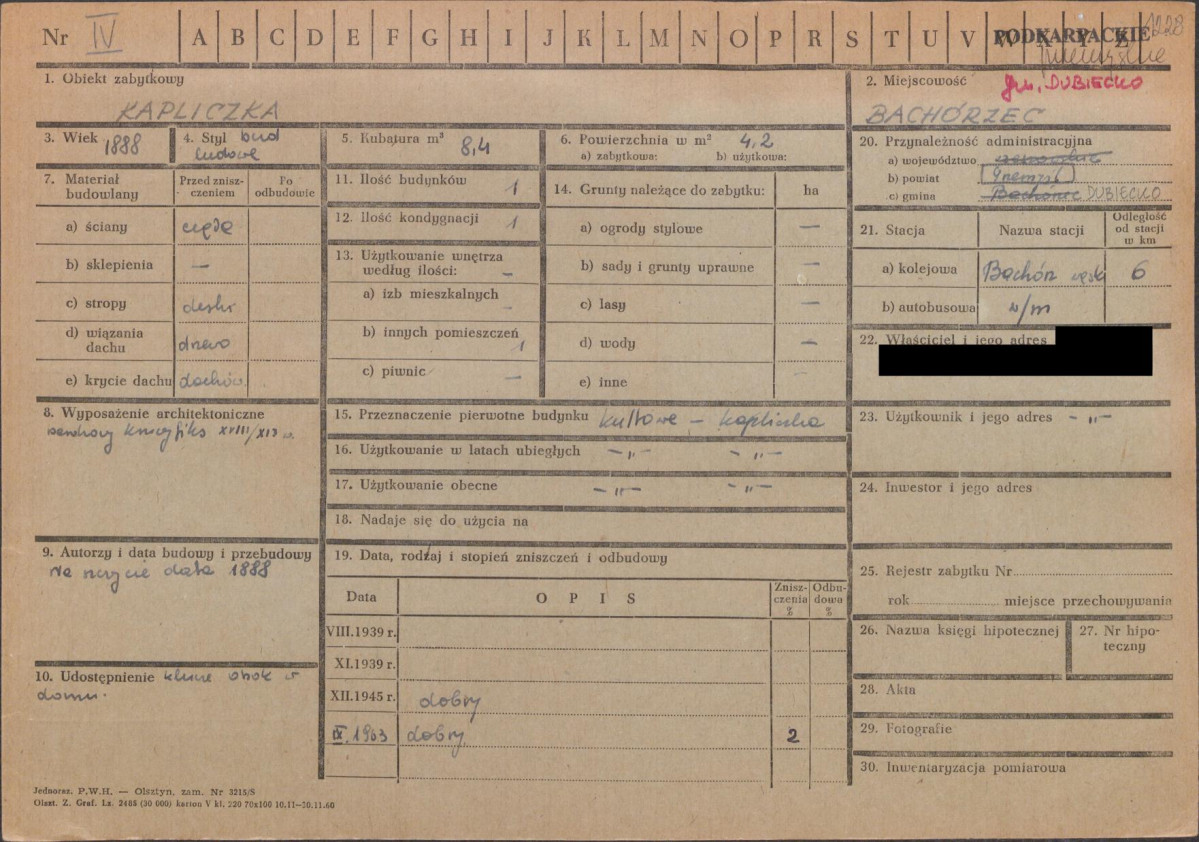 Nr IV A B C D E F G H I J K L M N O P R S T U V W X Y Z PODKARPACKIE 1228
1. Obiekt zabytkowy
KAPLICZKA
2. Miejscowość gm. DUBIECKO
BACHÓRZEC
3. Wiek 1888
4. Styl bud ludowe
5. Kubatura m³ 8,4
6. Powierzchnia w m² 4,2
a) zabytkowa: b) użytkowa:
7. Materiał budowlany
Przed zniszczeniem
Po odbudowie
a) ściany cegła
b) sklepienia —
c) stropy deski
d) wiązania dachu drzewo
e) krycie dachu dachów.
8. Wyposażenie architektoniczne
barokowy krucyfiks XVIII/XIX w.
9. Autorzy i data budowy i przebudowy
na szczycie data 1888
10. Udostępnienie klucze obok w
domu.
11. Ilość budynków 1
12. Ilość kondygnacji 1
13. Użytkowanie wnętrza według ilości: —
a) izb mieszkalnych —
b) innych pomieszczeń 1
c) piwnic —
14. Grunty należące do zabytku: ha
a) ogrody stylowe —
b) sady i grunty uprawne —
c) lasy —
d) wody —
e) inne —
15. Przeznaczenie pierwotne budynku kultowe — kapliczka
16. Użytkowanie w latach ubiegłych —„— —„—
17. Użytkowanie obecne —„— —„—
18. Nadaje się do użycia na
19. Data, rodzaj i stopień zniszczeń i odbudowy
Data OPIS Zniszczenia % Odbudowa %
VIII.1939 r.
XI.1939 r.
XII.1945 r. dobry
IX.1963 dobry 2
20. Przynależność administracyjna
a) województwo rzeszowskie
b) powiat Przemyśl
c) gmina Bachórzec DUBIECKO
21. Stacja
Nazwa stacji
Odległość od stacji w km
a) kolejowa Bachórz wąsk 6
b) autobusowa w/m
22. Właściciel i jego adres
23. Użytkownik i jego adres —„—
24. Inwestor i jego adres
25. Rejestr zabytku Nr
rok miejsce przechowywania
26. Nazwa księgi hipotecznej
27. Nr hipoteczny
28. Akta
29. Fotografie
30. Inwentaryzacja pomiarowa
Jednoraz. P.W.H. — Olsztyn, zam. Nr 3215/S
Olszt. Z. Graf. Lz. 2485 (30 000) karton V kl. 220 70x100 10.11—30.11.60